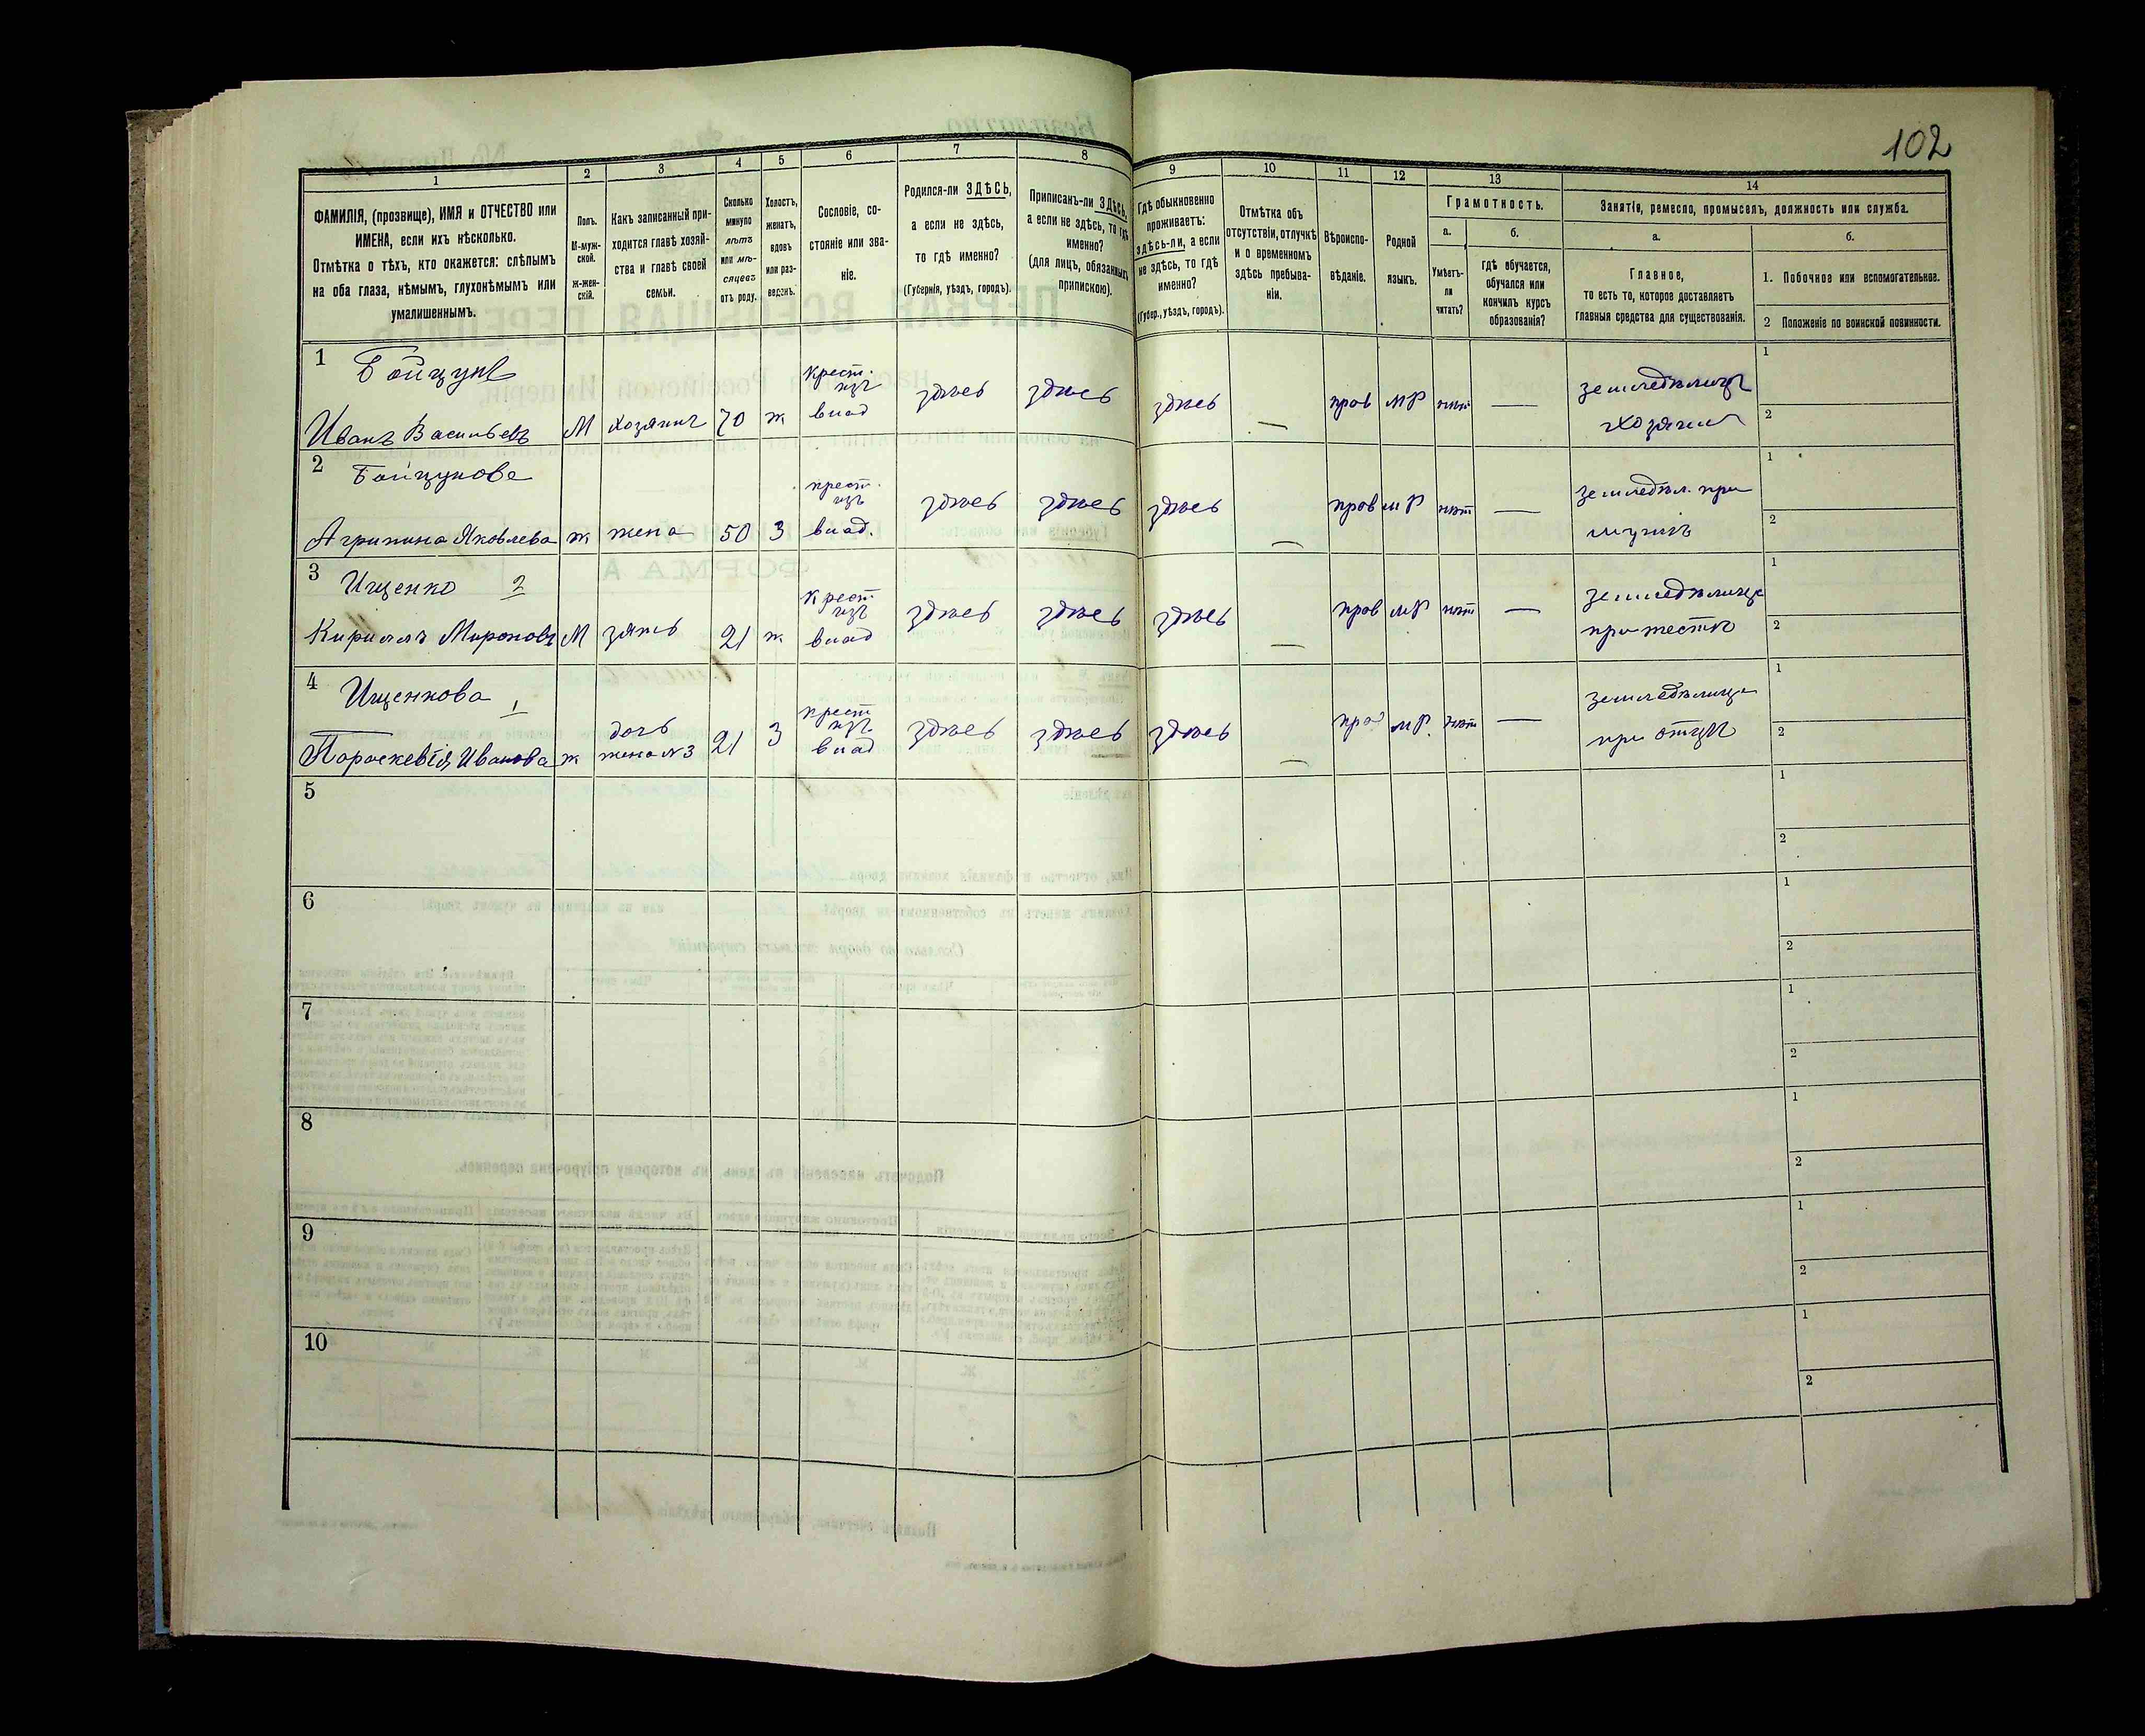 102
1 2 3 4 5 6 7 8 9 10 11 12 13 14
ФАМИЛІЯ, (прозвище), ИМЯ и ОТЧЕСТВО или
ИМЕНА, если ихъ нѣсколько.
Отмѣтка о тѣхъ, кто окажется: слѣпымъ
на оба глаза, нѣмымъ, глухонѣмымъ или
умалишеннымъ.
Полъ.
М-муж-
ской.
Ж-жен-
скій.
Какъ записанный при-
ходится главѣ хозяй-
ства и главѣ своей
семьи.
Сколько
минуло
лѣтъ
или мѣ-
сяцевъ
отъ роду.
Холостъ,
женатъ,
вдовъ
или раз-
веденъ.
Сословіе, со-
стояніе или зва-
ніе.
Родился-ли ЗДѢСЬ,
а если не здѣсь,
то гдѣ именно?
(Губернія, уѣздъ, городъ).
Приписанъ-ли ЗДѢСЬ,
а если не здѣсь, то гдѣ
именно?
(для лицъ, обязанныхъ
припискою).
Гдѣ обыкновенно
проживаетъ:
здѣсь-ли, а если
не здѣсь, то гдѣ
именно?
(Губер., уѣздъ, городъ).
Отмѣтка объ
отсутствіи, отлучкѣ
и о временномъ
здѣсь пребыва-
ніи.
Вѣроиспо-
вѣданіе.
Родной
языкъ.
Грамотность.
а.
Умѣетъ-
ли
читать?
б.
гдѣ обучается,
обучался или
кончилъ курсъ
образованія?
Занятія, ремесло, промыселъ, должность или служба.
а.
Главное,
то есть то, которое доставляетъ
главныя средства для существованія.
б.
1. Побочное или вспомогательное.
2 Положеніе по воинской повинности.
1 Бойцунъ
Иванъ Васильевъ М хозяинъ 70 ж крест. изъ влад здѣсь здѣсь здѣсь — прав МР нѣт — земледѣлецъ хозяинъ 1 2
2 Бойцунова
Агрипина Яковлева ж жена 50 З крест. изъ влад. здѣсь здѣсь здѣсь — прав МР нѣт — земледѣл. при мужѣ 1 2
3 Ищенко 2
Кириллъ Мироновъ М зять 21 ж крест изъ влад здѣсь здѣсь здѣсь — прав МР нѣт — земледѣлецъ при тестѣ 1 2
4 Ищенкова 1
Параскевія Иванова ж дочь жена №3 21 З крест изъ влад здѣсь здѣсь здѣсь — прав МР. нѣт — земледѣлица при отцѣ 1 2
5 1 2
6 1 2
7 1 2
8 1 2
9 1 2
10 1 2